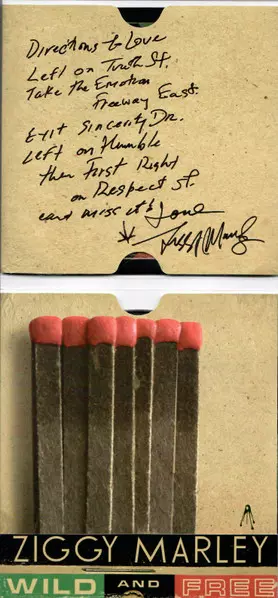 Directions to Love
Left on Truth St.
Take the Emotion
Freeway East.
Exit Sincerity Dr.
Left on Humble
then First Right
on Respect St.
cant miss it's
Love
Ziggy Marley
ZIGGY MARLEY
WILD AND FREE